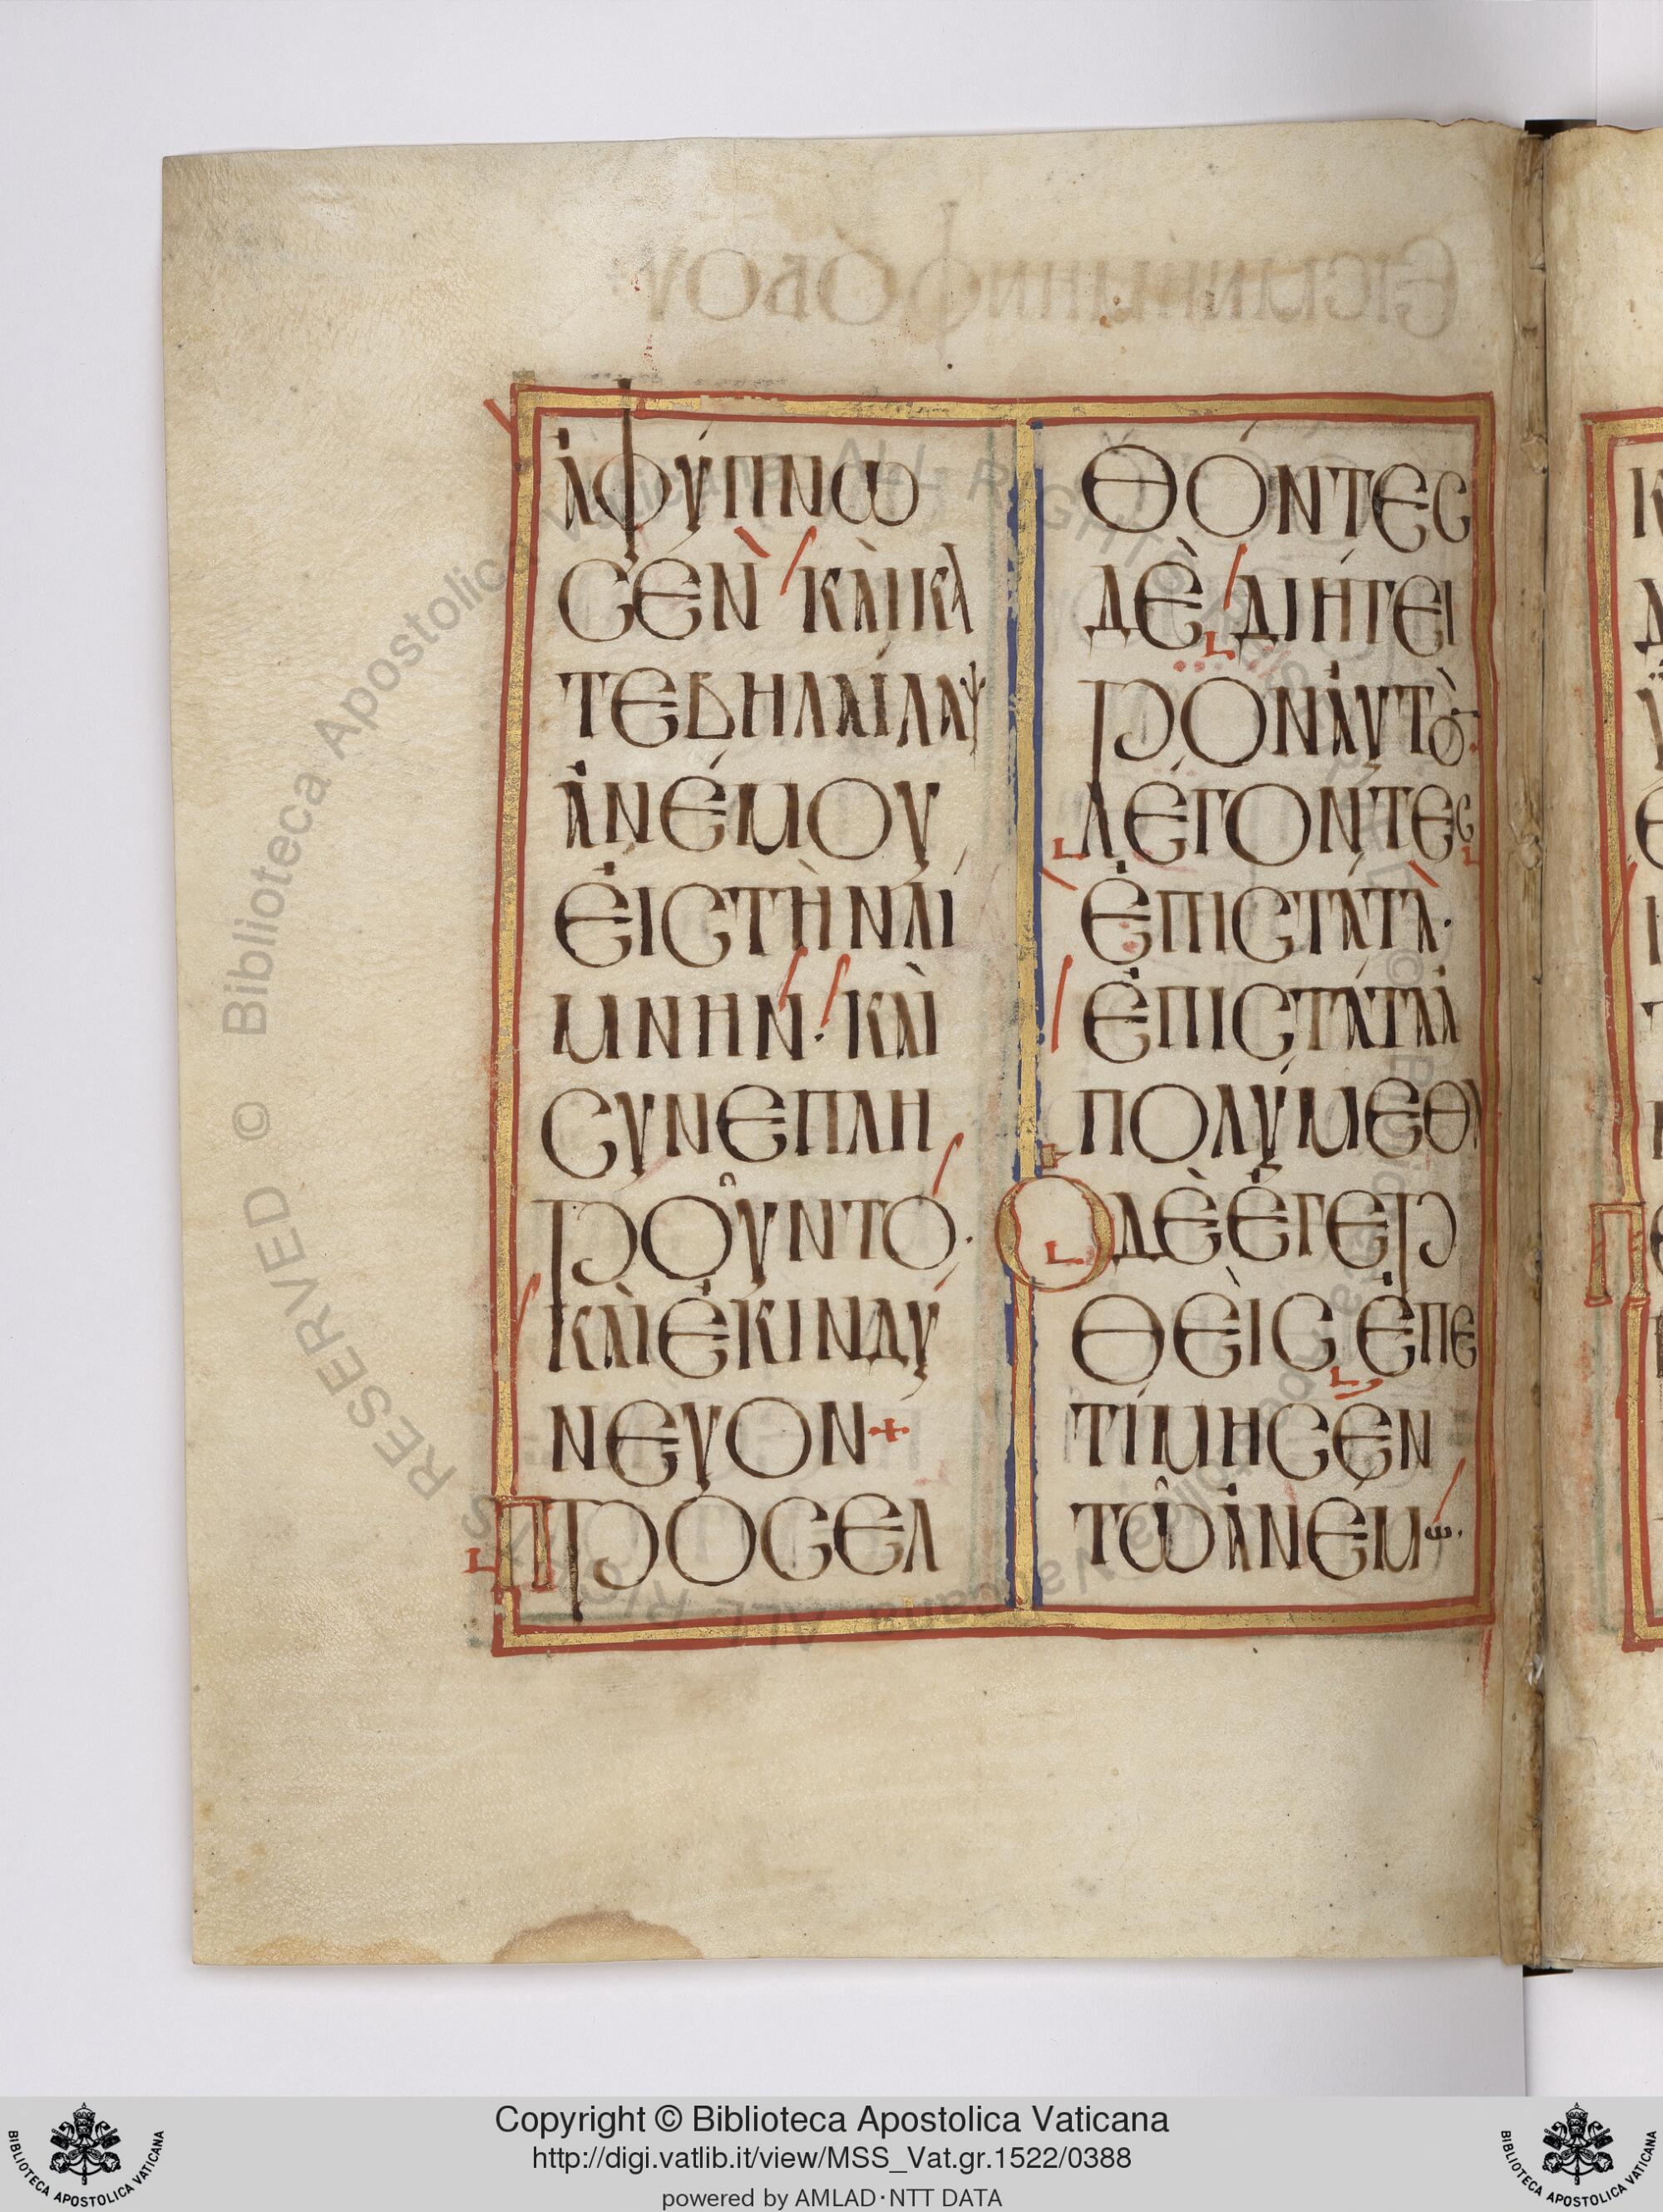 ἀφύπνω
σεν καὶ κα
τέβη λαίλαψ
ἀνέμου
εἰς τὴν λί
μνην· καὶ
συνεπλη
ροῦντο·
καὶ ἐκινδύ
νευον+
Προσελ
θόντες
δὲ διήγει
ρον ἀυτὸν
λέγοντες
ἐπιστάτα·
ἐπιστάτα ἀ
πολύμεθα
Ὁ δὲ ἐγερ
θεὶς ἐπε
τίμησεν
τῶ ἀνέμω·
Copyright © Biblioteca Apostolica Vaticana
http://digi.vatlib.it/view/MSS_Vat.gr.1522/0388
powered by AMLAD·NTT DATA
BIBLIOTECA APOSTOLICA VATICANA
BIBLIOTECA APOSTOLICA VATICANA